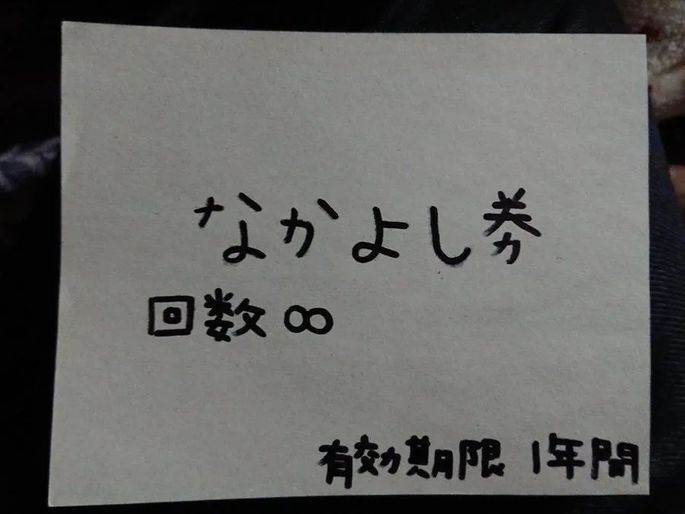 なかよし券
回数 ∞
有効期限 1年間